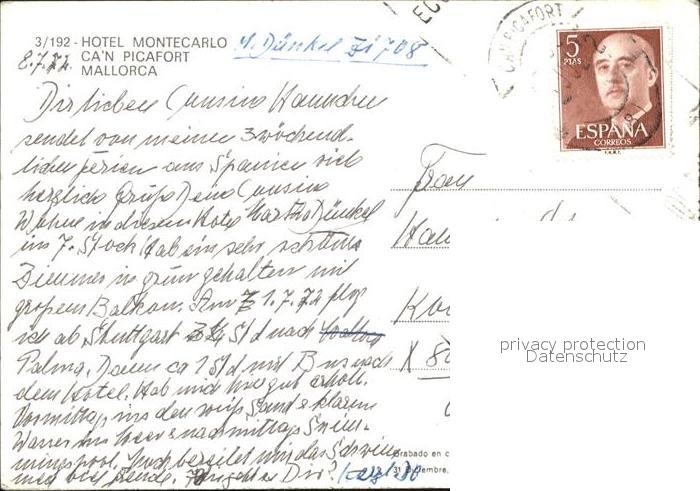 3/192 - HOTEL MONTECARLO
CA'N PICAFORT
MALLORCA
8.7.72.
M. Dünkel Zi 708
CA'N PICAFORT
5
PTAS
ESPAÑA
CORREOS
Dir lieben Cousine Hannchen
sendet von meinen 3 wöchend-
lichen Ferien aus Spanien viel
herzlich Grüße Deine Cousine
Wohne in diesem Hotel Martha Dünkel
im 7. Stock Hab ein sehr schönes
Zimmer in grün gehalten mit
großem Balkon. Am 1.7.72 flog
ich ab Stuttgart Std nach
Palma. Dann ca 1 Std mit Bus nach
dem Hotel. Hab mich hier gut erholt.
Vormittag ins den weiß Sand & klaren
Wasser ins & nachmittag Swim-
mingpool. bereitet mir das Schwim
men viel Freude. Wie geht es Dir?
Frau
privacy protection
Datenschutz
Grabado en c
31 Diciembre.